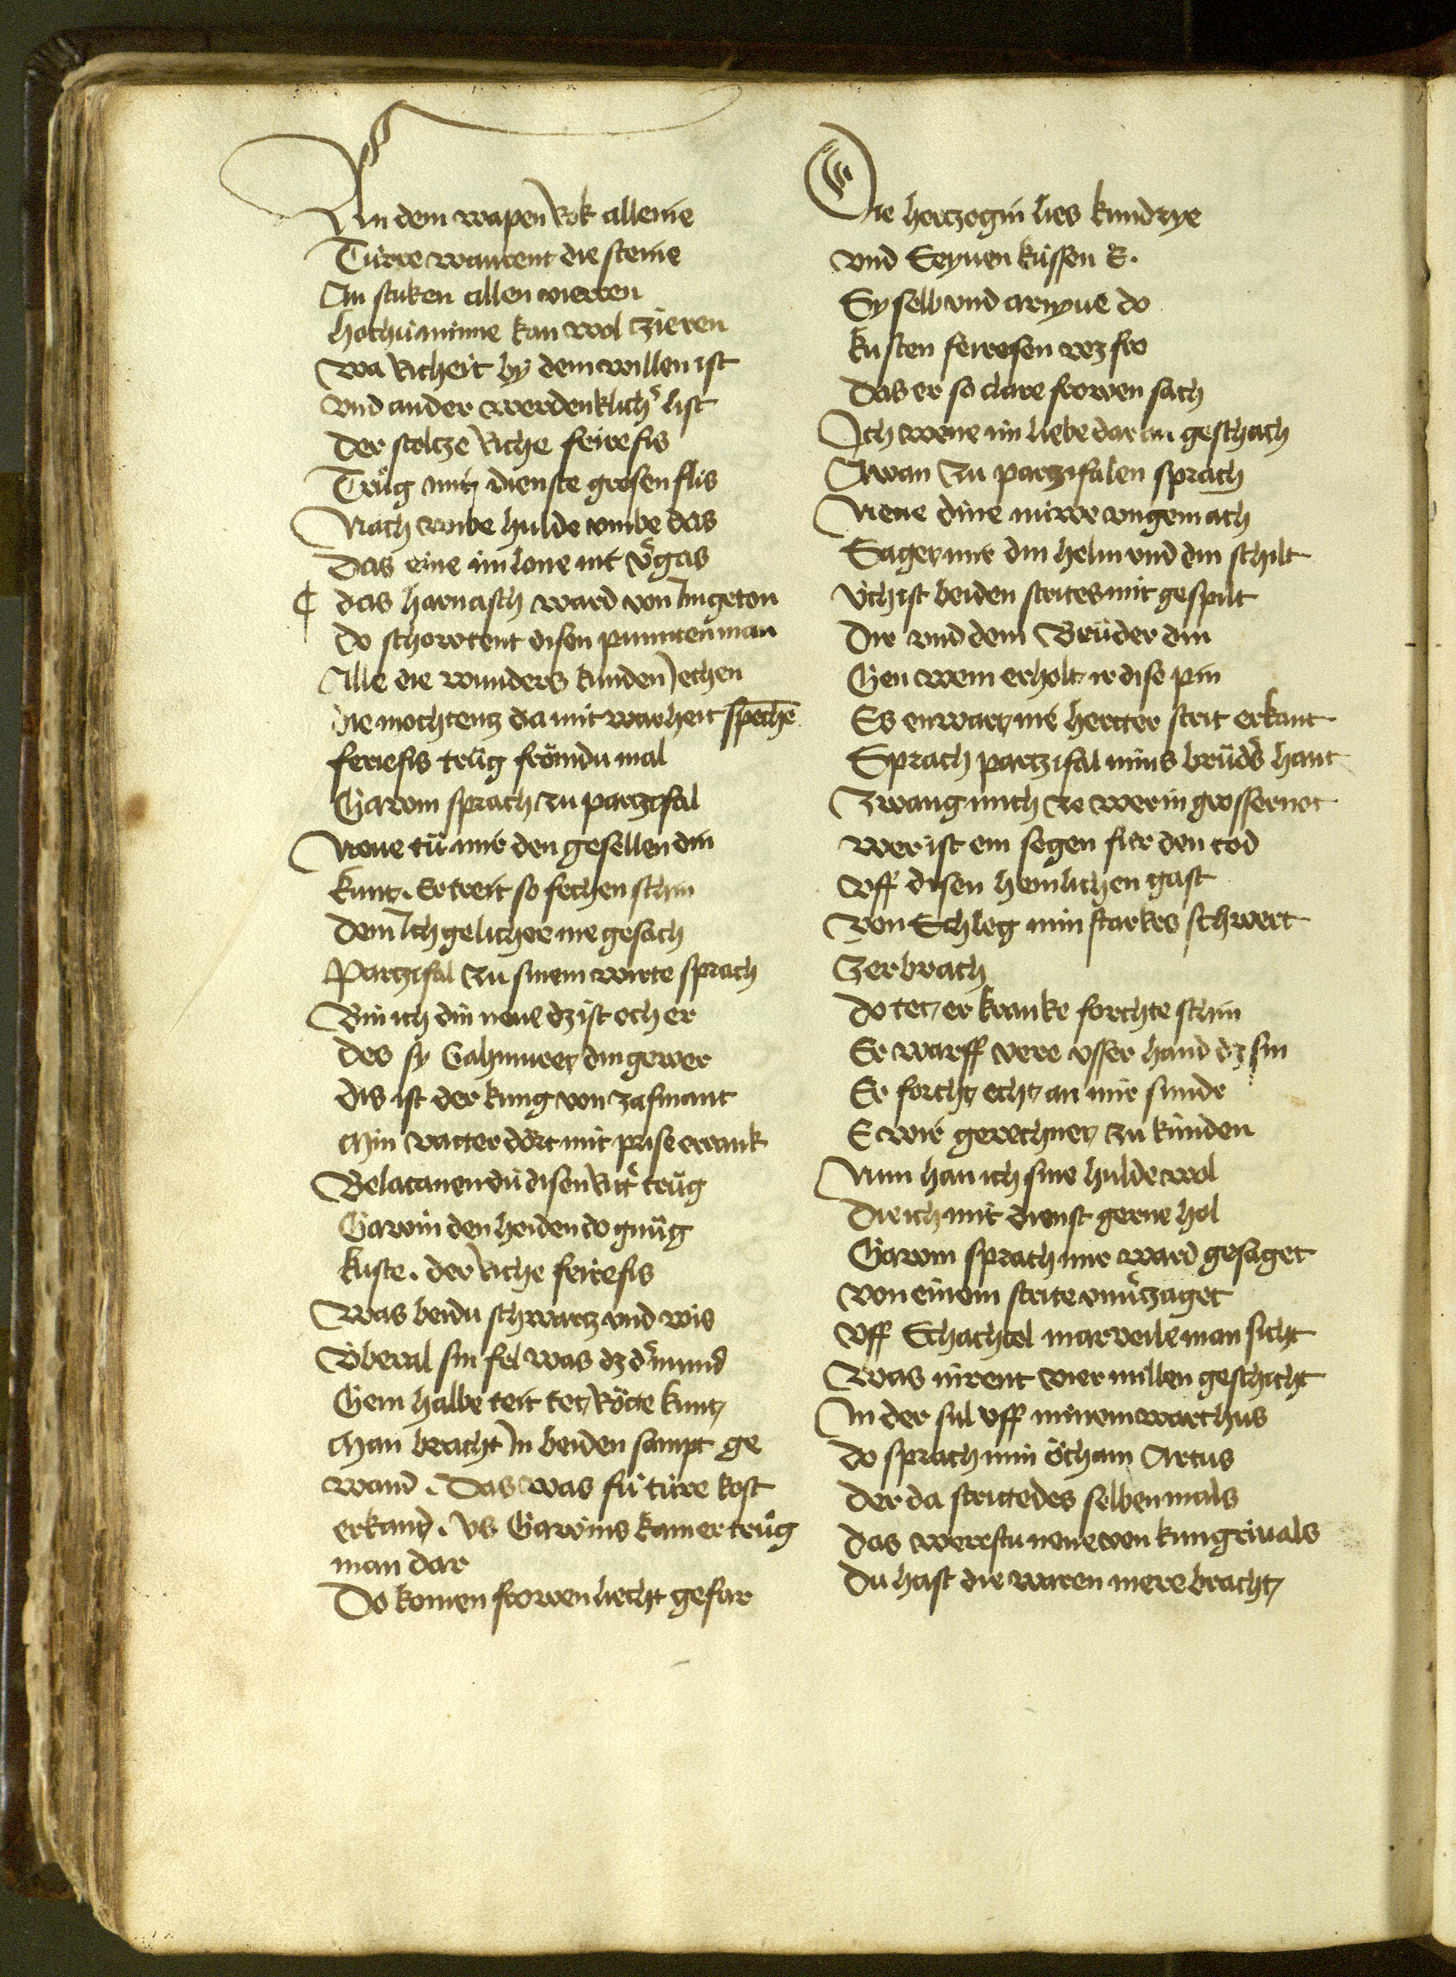 An dem wapen Rok alleine
Túrre warrent die steine
An stuken allen vierren
hochú minne kan wol zieren
wa Richeit bÿ dem willen ist
vnd ander werdenklichʼ list
der stoltze Riche feirefis
Trůg mitz dienste grosen flis
Nach wibe hulde vmbe das
Das eine im lone nit vʼgas
¶ das harnasch ward von Im geton
do schowtent disen puntten man
Alle die wunders kunden Jechen
die mochtenz da mit warheit spechē
feriefis trůg frömdu mal
Gawin sprach zu partzifal
Neue tů mir den gesellen din
kunt. Er treit so fechen schin
dem Ich gelicher nie gesach
Partzifal zu sinem wirte sprach
Bin ich din neue dz ist och er
des sÿ Gahmuret din gewer
dis ist der kung von zasmant
Min vatter dört mit prise erwank
Belacanen dú disen Ritʼ trůg
Gawin den heiden do gnůg
kuste. der Riche feirefis
Was beidu schwartz vnd wis
Vberal sin fel was dz dʼ mund
Gem halbe teit tet Röte kunt
Man bracht In beiden sampt ge
wand. Das was fú túre kost
erkand. vs Gawins kamer trůg
man dar
Do komen frowen liecht gefar
Die hertzogin lies kundrye
vnd Seyuen küssen E.
Sy selb vnd arnyue do
kusten feirefisen wz fro
Das er so clare frowen sach
Ich wene im liebe dar an geschach
Awan zu partzifalen sprach
Neue dine niwe vngemach
Saget mir din helm vnd din schilt
Vch ist beiden strites mit gespilt
Dir vnd dem Brůder din
Gen wem erholt ir dise pin
Es enwart nie hertter strit erkant
Sprach partzifal mins brůdʼs hant
Zwang mich ze wer in grossernot
wer ist ein segen fúr den tod
Vff disen heimlichen gast
Von Schleg min starkes schwert
Zerbrach
do tet er kranke forchte schin
Er warff vere vsser hand dz sin
Er forcht echt an mir sunde
E wir gerechnet zu kunden
Nun han ich sine hulde wol
Die ich mit dienst gerne hol
Gawin sprach mir ward gesaget
von einem strite vnuʼzaget
Vff Schachtel marveile man sicht
Was inrent vier millen geschicht
In der sul vff minem warthus
do sprach min öcham Artus
der da stritte des selben mals
das werestu neue von kungriuals
Du hast die waren mere bracht